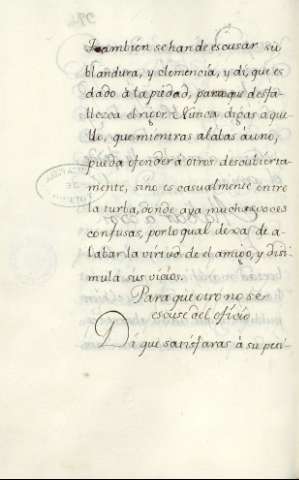 Tcambien se han de escusar su
blandura, y clemencia, y di, que es
dado à la piedad, para que desfa-
llezca el rigor. Nunca digas aque
llo, que mientras alabas áuno,
pueda ofender á otros descubierta
mente, sino es casualmente entre
la turba, donde aya muchas voces
confusas, por lo qual dexa de a-
labar la virtud de el amigo, y disi
mula sus vicios.
Para que otro no se
escuse del oficio
Di que satisfaras á su peti-